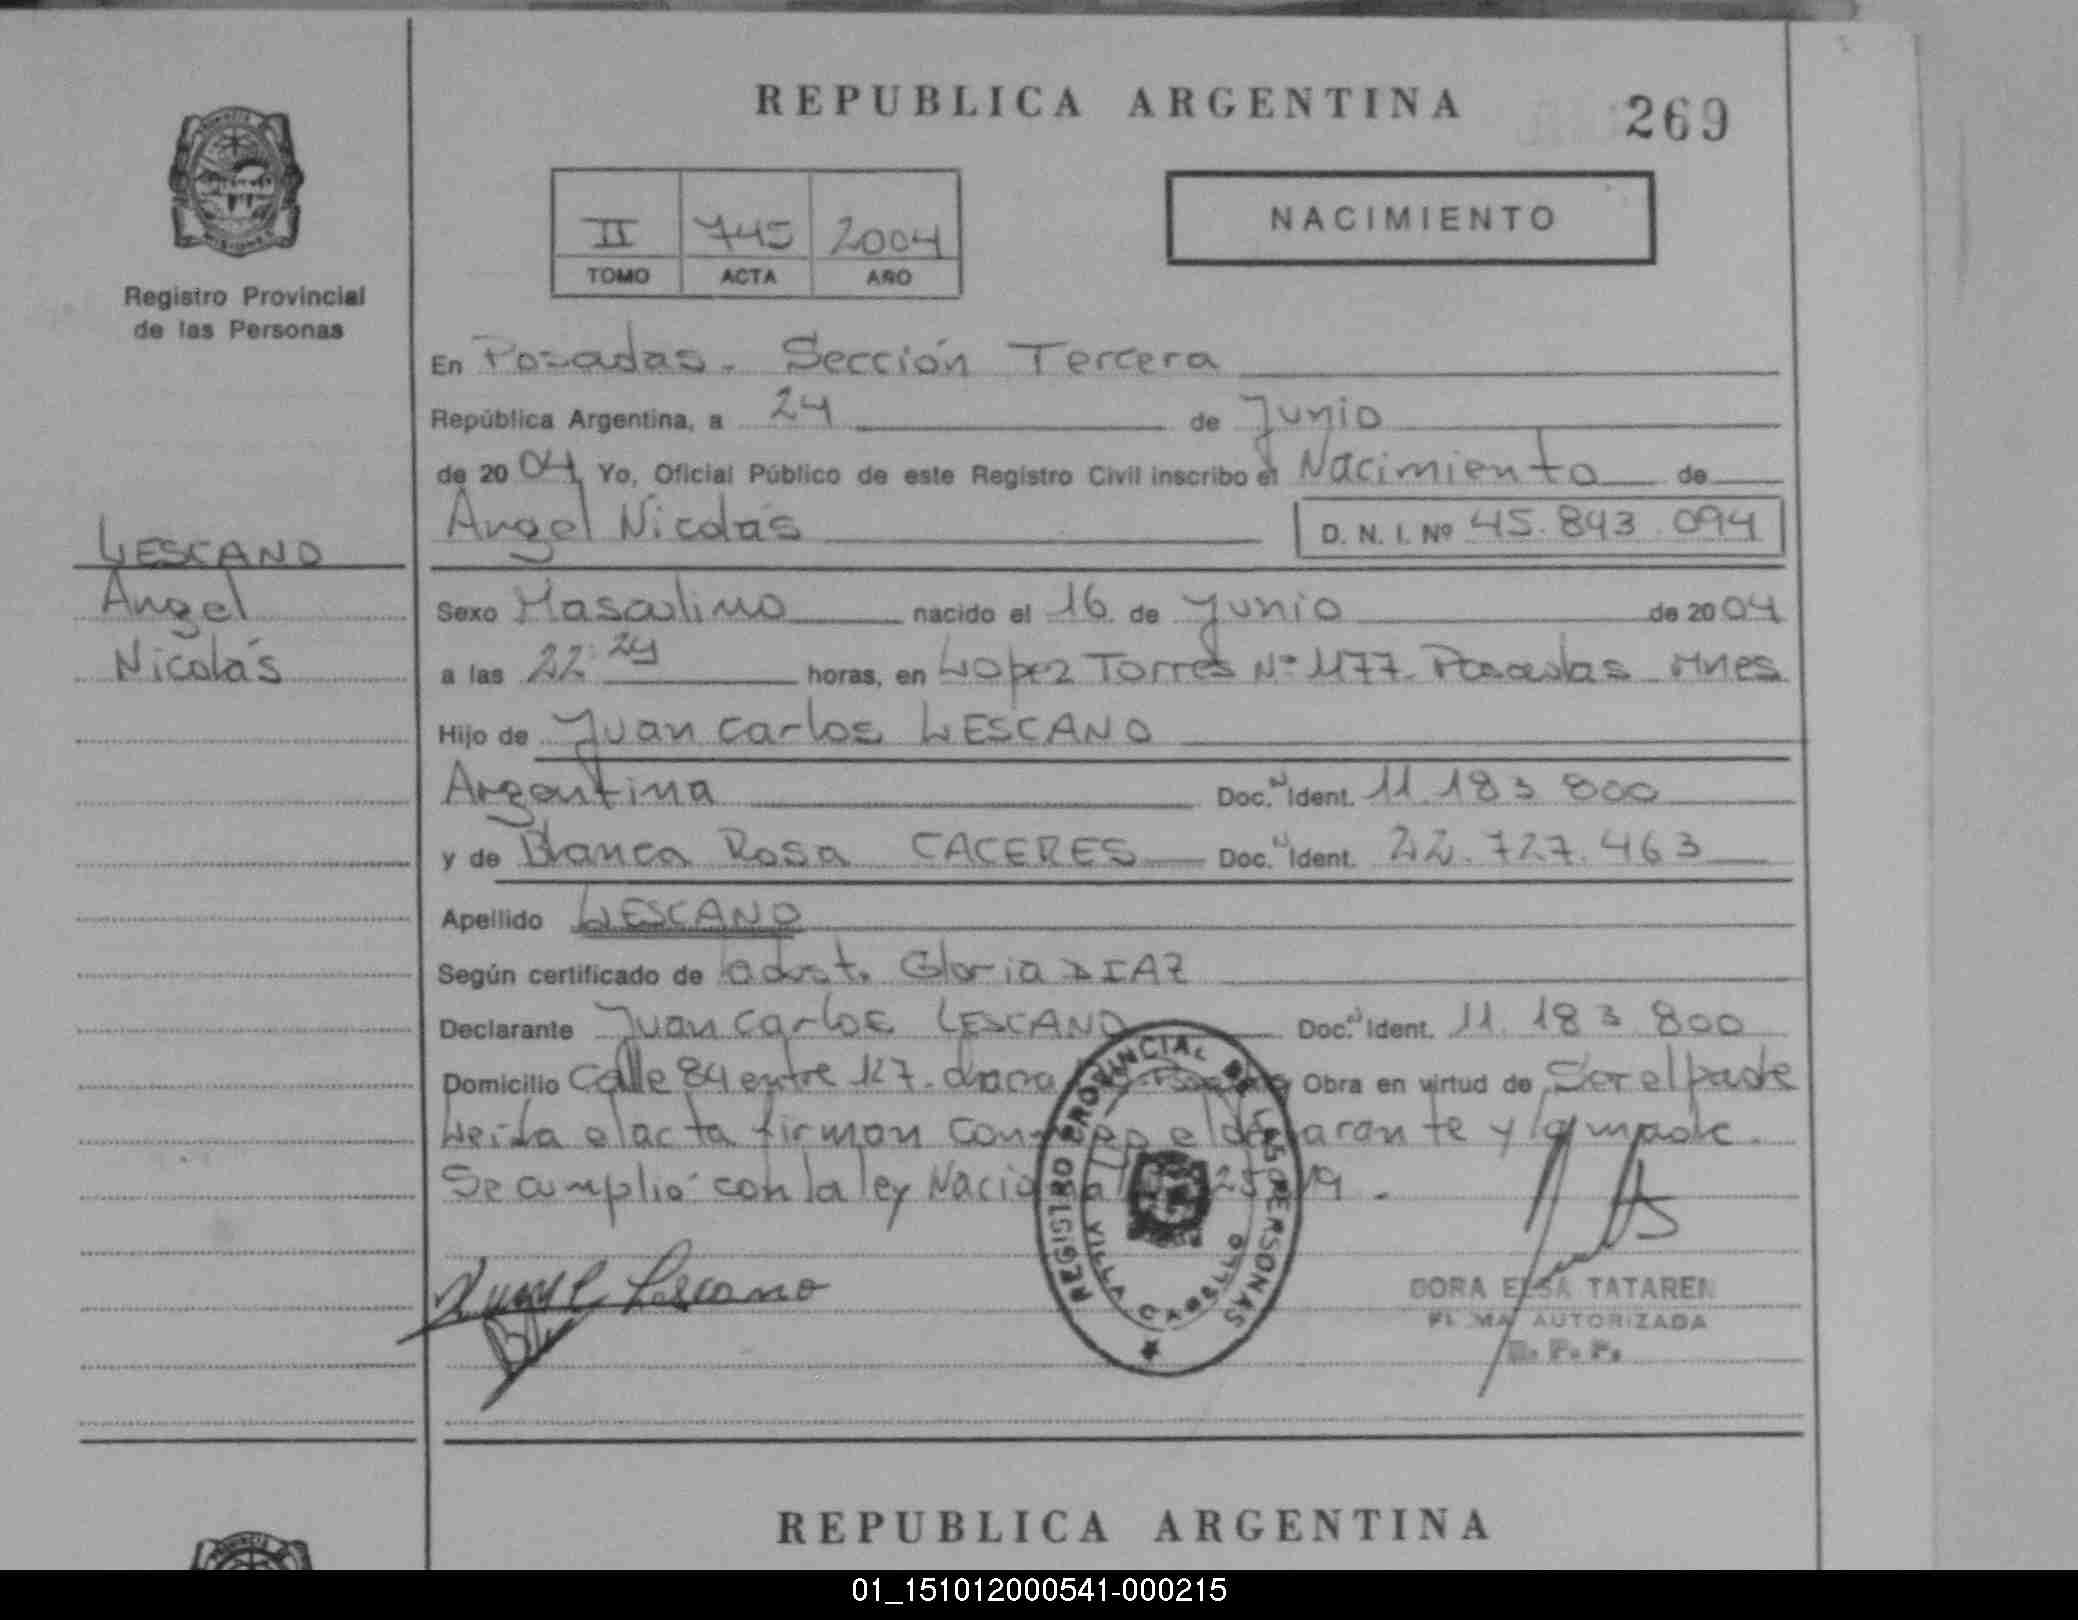 REPUBLICA ARGENTINA
269
Registro Provincial
de las Personas
II 745 2004
TOMO ACTA AÑO
NACIMIENTO
En Posadas. Sección Tercera
República Argentina, a 24 de Junio
de 2004 Yo, Oficial Público de este Registro Civil inscribo el Nacimiento de
Angel Nicolás D. N. I. Nº 45.843.094
LESCANO
Angel
Nicolás
Sexo Masculino nacido el 16 de Junio de 2004
a las 22:24 horas, en Lopez Torres Nº 1177 Posadas Mnes
Hijo de Juan Carlos LESCANO
Argentina Doc. Ident. 11.183.800
y de Blanca Rosa CACERES Doc. Ident. 22.727.463
Apellido LESCANO
Según certificado de obst. Gloria DIAZ
Declarante Juan Carlos LESCANO Doc. Ident. 11.183.800
Domicilio Calle 84 entre 127. chacra Obra en virtud de Ser el padre
Leida el acta firman el declarante y la madre.
Se cumplió con la ley
REGISTRO PROVINCIAL DE LAS PERSONAS
VILLA CABELLO
Lescano
DORA ELSA TATAREN
FIRMA AUTORIZADA
R. P. P.
REPUBLICA ARGENTINA
01_151012000541-000215